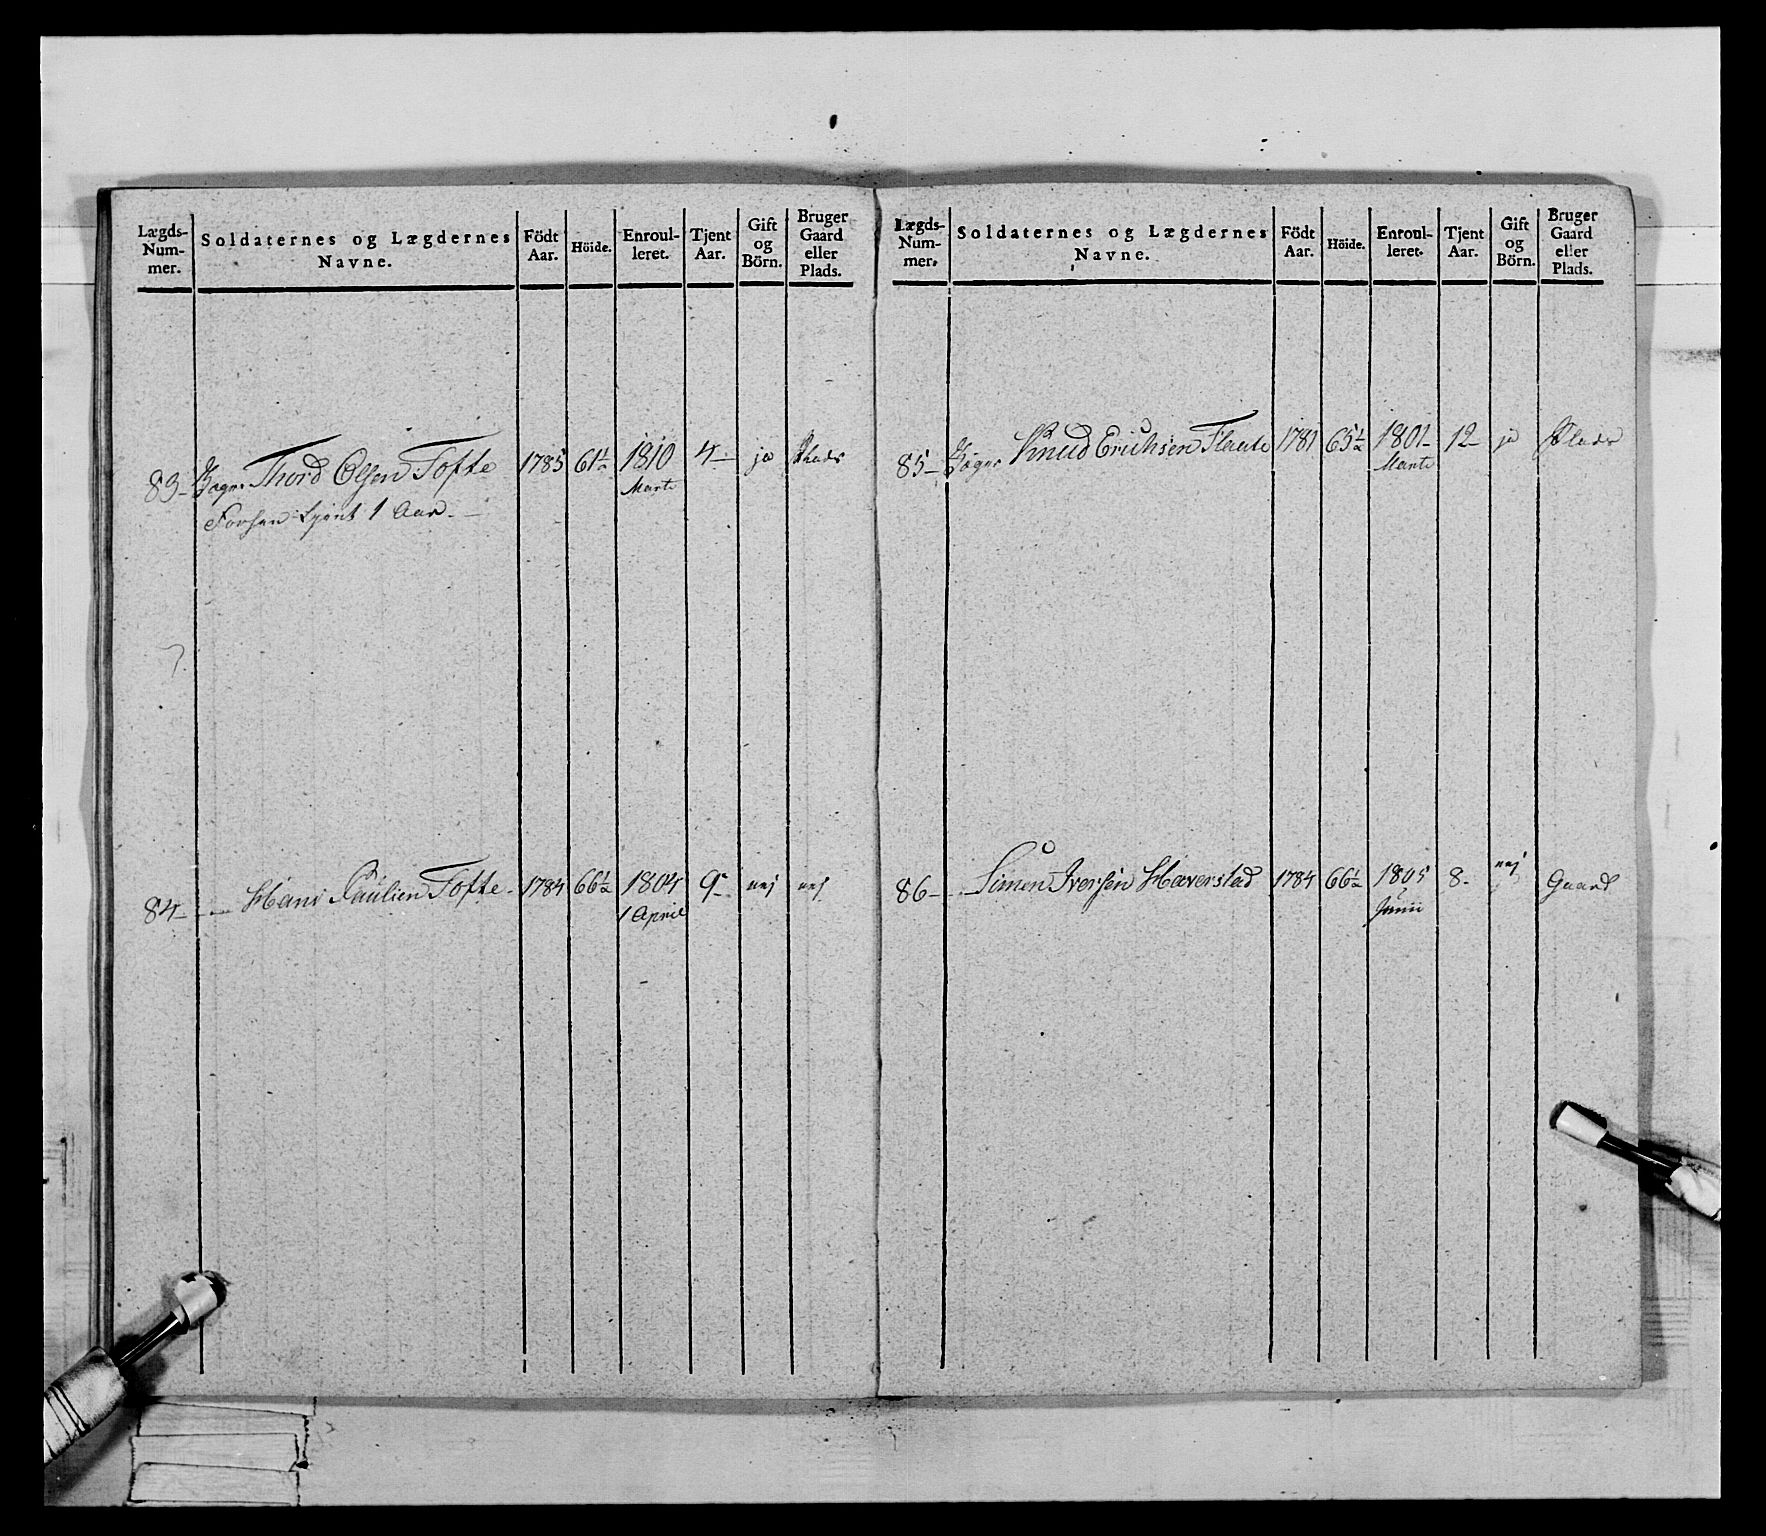 Lægds-Num-mer. Soldaternes og Lægdernes Navne. Födt Aar. Höide. Enroul-leret. Tjent Aar. Gift og Börn. Bruger Gaard eller Plads.
83 Thord Olsen Tofte 1785 61½ 1810 4 ja Plads
Marti
Forhen tjent 1 Aar
84 Hans Paulsen Tofte 1784 66½ 1804 9 nej nej
1 April
Lægds-Num-mer. Soldaternes og Lægdernes Navne. Födt Aar. Höide. Enroul-leret. Tjent Aar. Gift og Börn. Bruger Gaard eller Plads.
85 Knud Erichsen Flaate 1781 65½ 1801 12 ja Plads
Marti
86 Simen Iversen Haverstad 1784 66½ 1805 8 nej Gaard
Junii